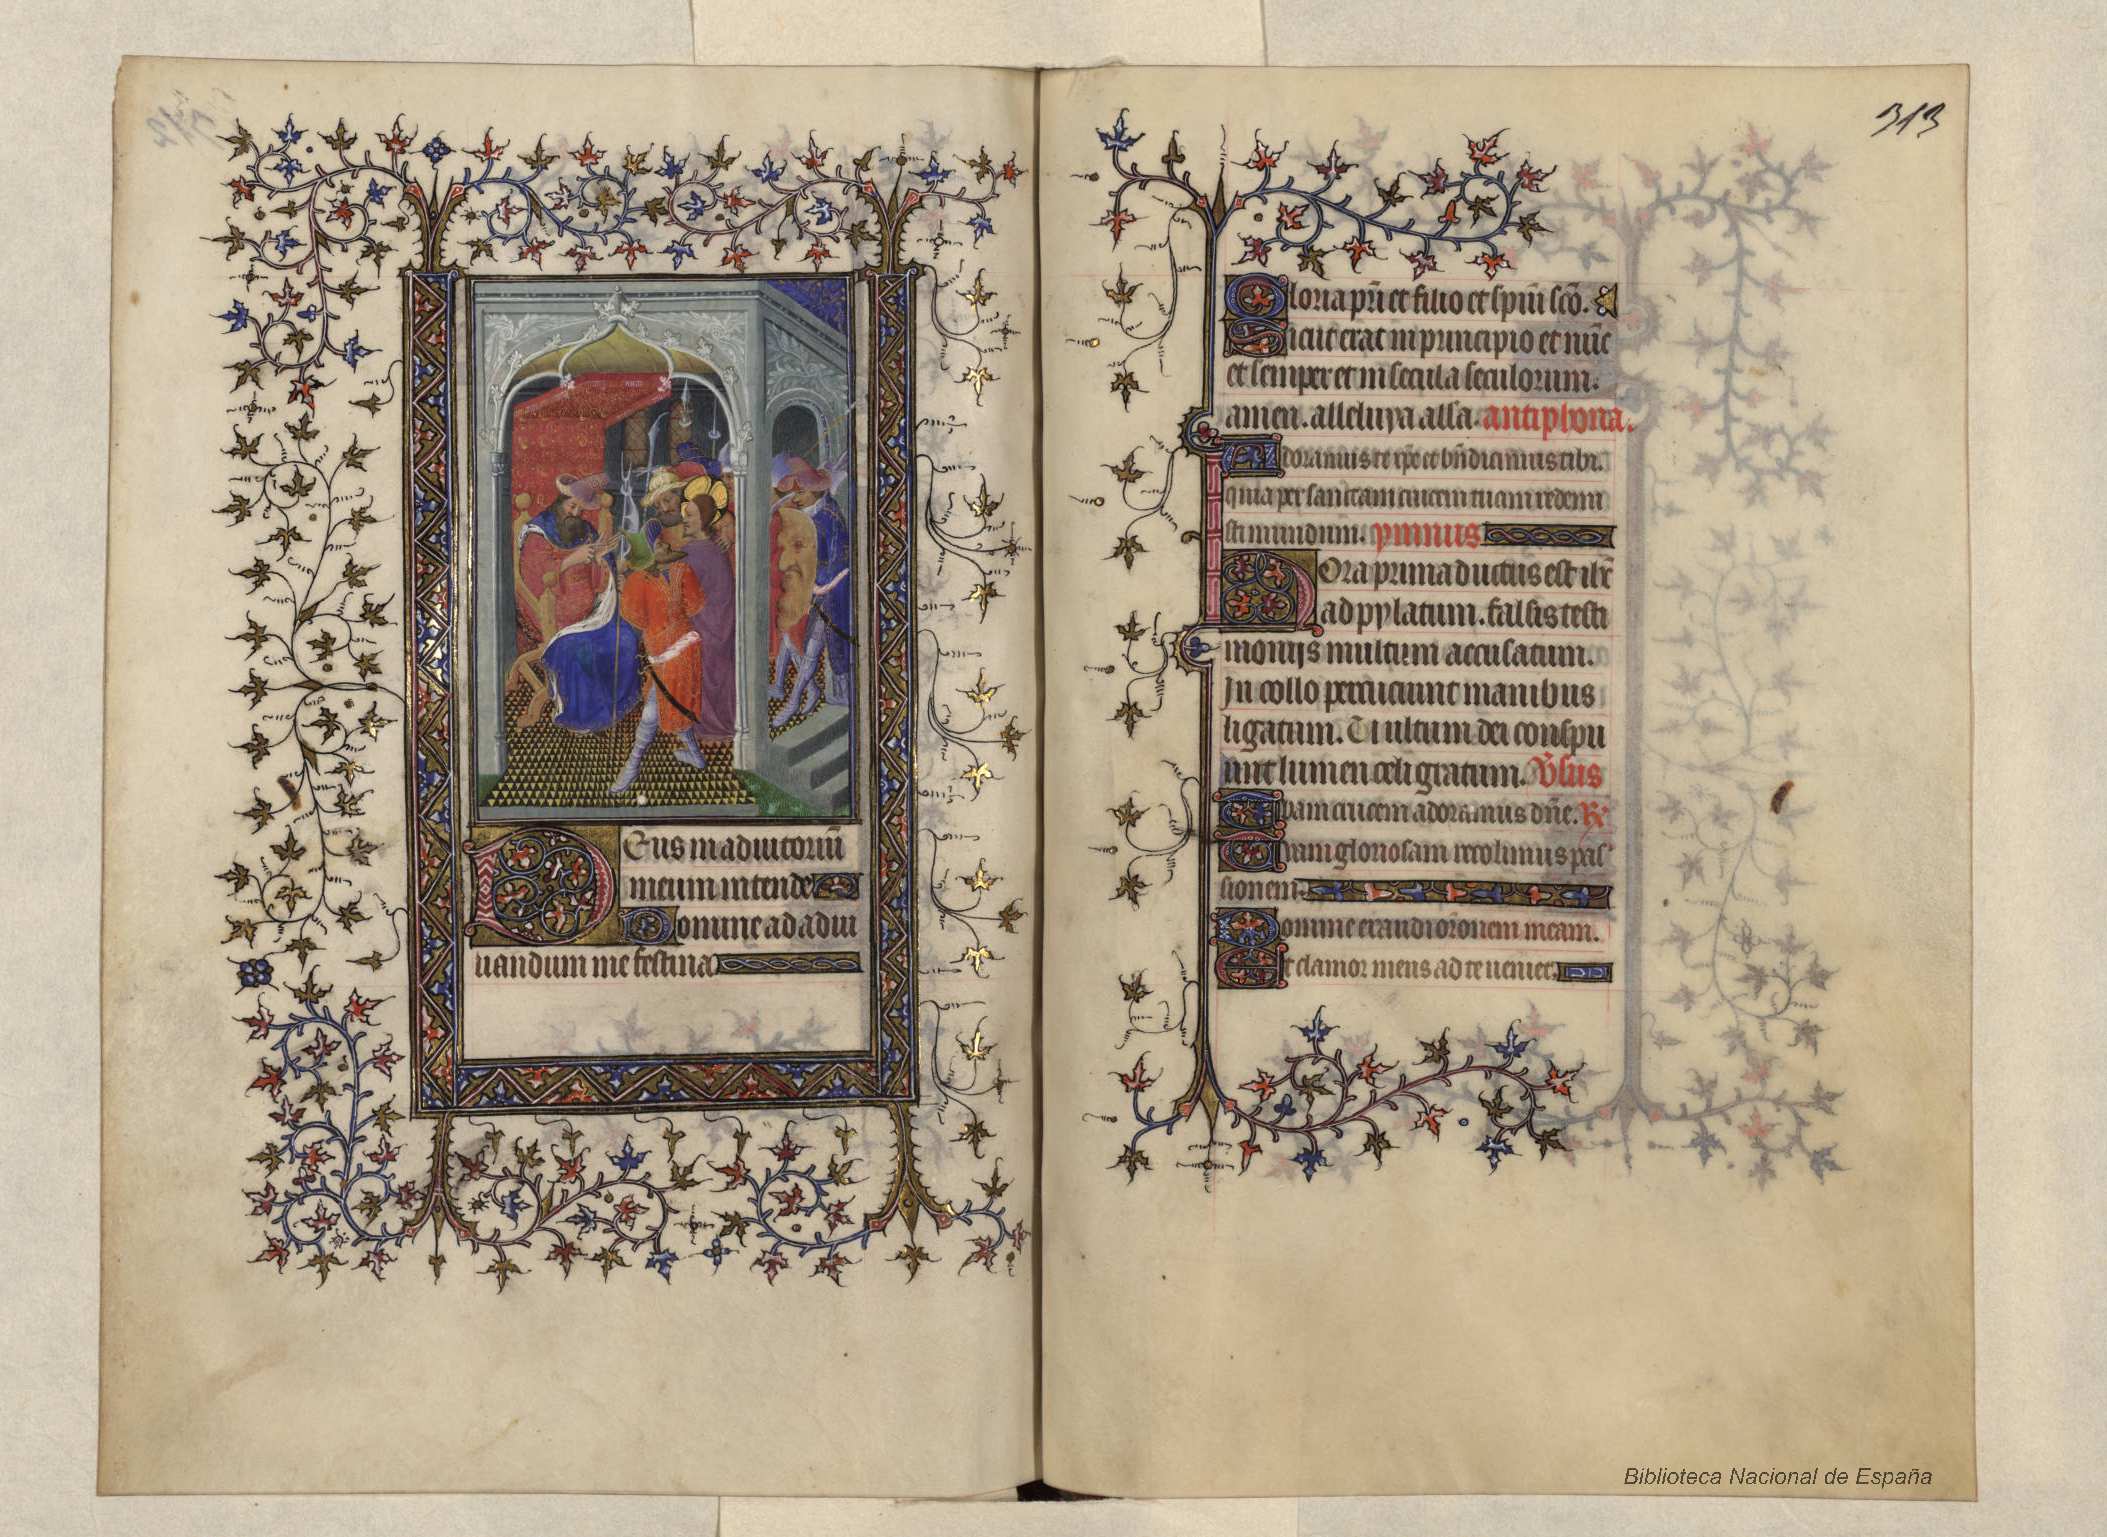 Deus in adiutoriū
meum intende
Domine ad adiu
uandum me festina
313
Gloria pr̄i et filio et spūi scō.
Sicut erat in principio et nūc
et semper et in secula seculorum.
amen. alleluya alla. antiphona.
Adoramus te xp̄e et bn̄dicimus tibi.
quia per sanctam crucem tuam redemi
sti mundum. ymnus
Hora prima ductus est ihc̄
ad pylatum. falsis testi
moniis multum accusatum.
In collo percuciunt manibus
ligatum. Uultum dei conspu
unt lumen celi gratum. V̄sus
Tuam crucem adoramus dn̄e. R̄
Tuam gloriosam recolimus pas
sionem.
Domine exaudi or̄onem meam.
Et clamor meus ad te ueniet.
Biblioteca Nacional de España